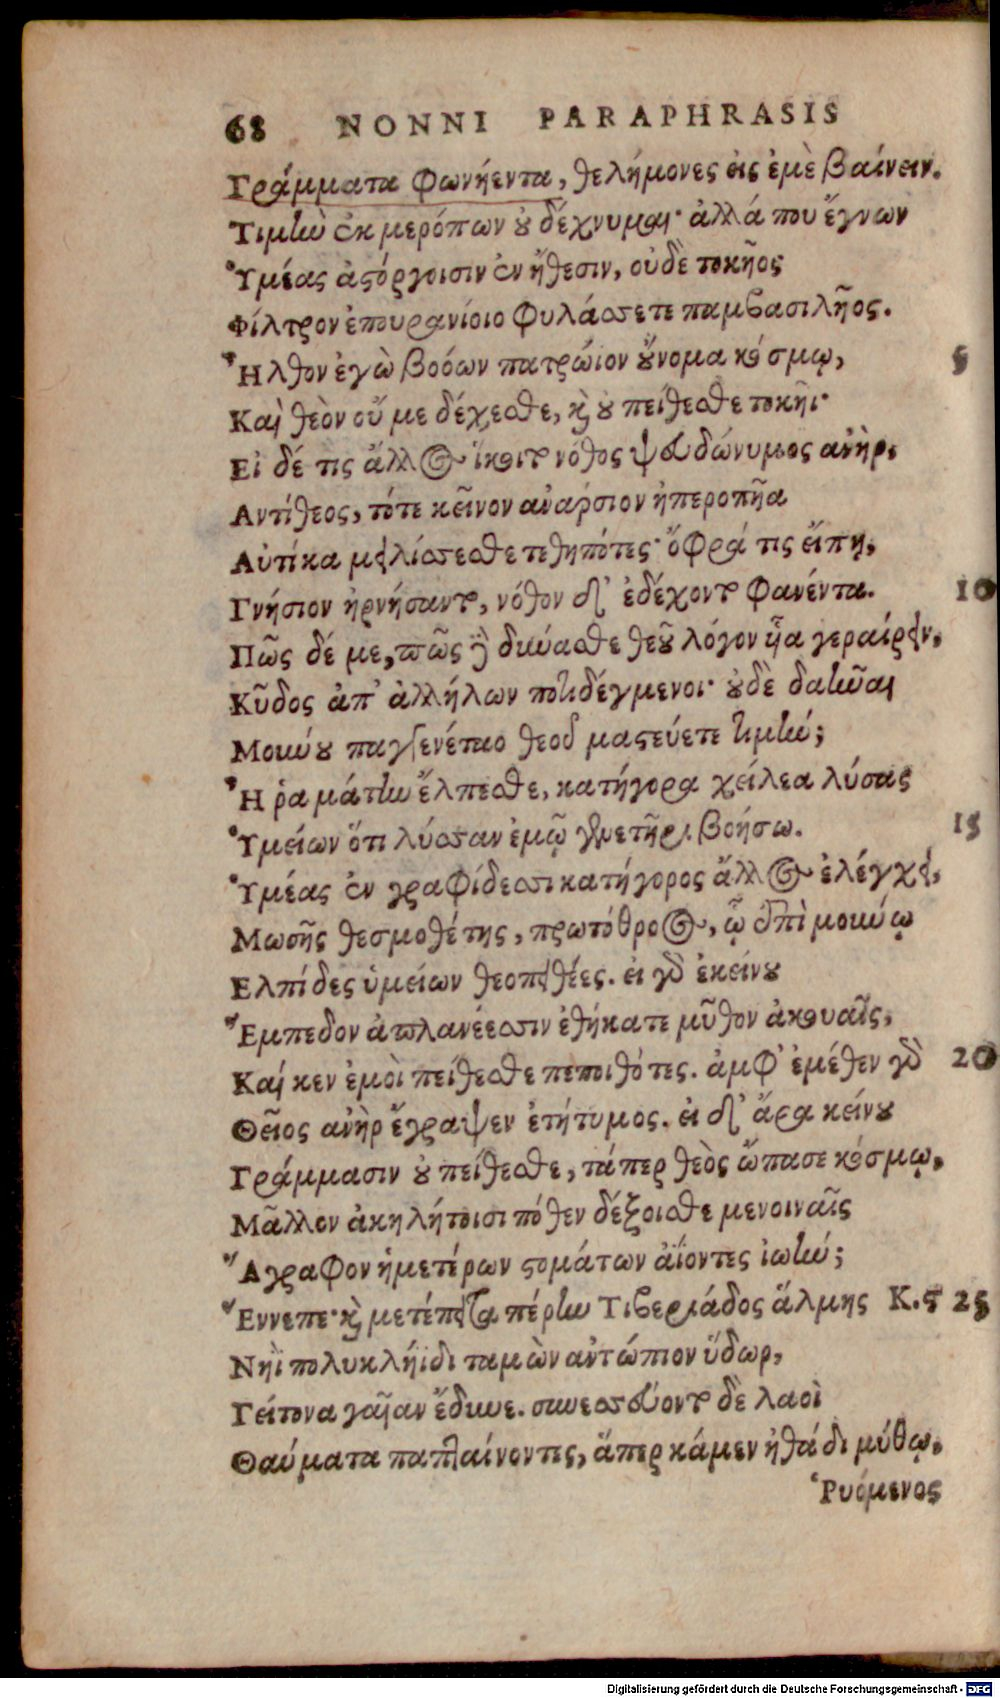 68 NONNI PARAPHRASIS
Γράμματα φωνήεντα, θελήμονες εἰς ἐμὲ βαίνειν.
Τιμὴν ἐκ μερόπων οὐ δέχνυμαι· ἀλλά που ἔγνων
Ὑμέας ἀστόργοισιν ἐν ἤθεσιν, οὐδὲ τοκῆος
Φίλτρον ἐπουρανίοιο φυλάσσετε παμβασιλῆος.
Ἦλθον ἐγὼ βοόων πατρώιον οὔνομα κόσμῳ, 5
Καὶ θεὸν οὔ με δέχεσθε, καὶ οὐ πείθεσθε τοκῆι·
Εἰ δέ τις ἄλλος ἵκοιτο νόθος ψευδώνυμος ἀνὴρ,
Αντίθεος, τότε κεῖνον ἀνάρσιον ἠπεροπῆα
Αὐτίκα μειλίσσεσθε τεθηπότες· ὄφρά τις εἴπῃ,
Γνήσιον ἠρνήσαντο, νόθον δ' ἐδέχοντο φανέντα. 10
Πῶς δέ με, πῶς δύνασθε θεοῦ λόγον ἷἷα γεραίρειν,
Κῦδος ἀπ' ἀλλήλων ποτιδέγμενοι· οὐδὲ δαῆναι
Μούνου παγγενέταο θεοῦ μαστεύετε τιμήν;
Ἦ ῥα μάτην ἔλπεσθε, κατήγορα χείλεα λύσας
Ὑμείων ὅτι λύσσαν ἐμῷ γενετῆρι βοήσω. 15
Ὑμέας ἐν γραφίδεσσι κατήγορος ἄλλος ἐλέγχει,
Μωσῆς θεσμοθέτης, πρωτόθροος, ᾧ ἐπὶ μούνῳ
Ελπίδες ὑμείων θεοπειθέες. εἰ γὰρ ἐκείνου
Ἔμπεδον ἀπλανέεσσιν ἐθήκατε μῦθον ἀκουαῖς,
Καί κεν ἐμοὶ πείθεσθε πεποιθότες. ἀμφ' ἐμέθεν γὰρ 20
Θεῖος ἀνὴρ ἔγραψεν ἐτήτυμος. εἰ δ' ἄρα κείνου
Γράμμασιν οὐ πείθεσθε, τάπερ θεὸς ὤπασε κόσμῳ,
Μᾶλλον ἀκηλήτοισι πόθεν δέξοισθε μενοιναῖς
Ἄγραφον ἡμετέρων στομάτων ἀΐοντες ἰωήν;
Ἔννεπε· καὶ μετέπειτα πέρην Τιβεριάδος ἅλμης Κ.ϛ 25
Νηῒ πολυκλήϊδι ταμὼν ἀντώπιον ὕδωρ,
Γείτονα γαῖαν ἔδυνε. συνεσσεύοντο δὲ λαοὶ
Θαύματα παπταίνοντες, ἅπερ κάμεν ἠθάδι μύθῳ,
Ῥυόμενος
Digitalisierung gefördert durch die Deutsche Forschungsgemeinschaft - DFG